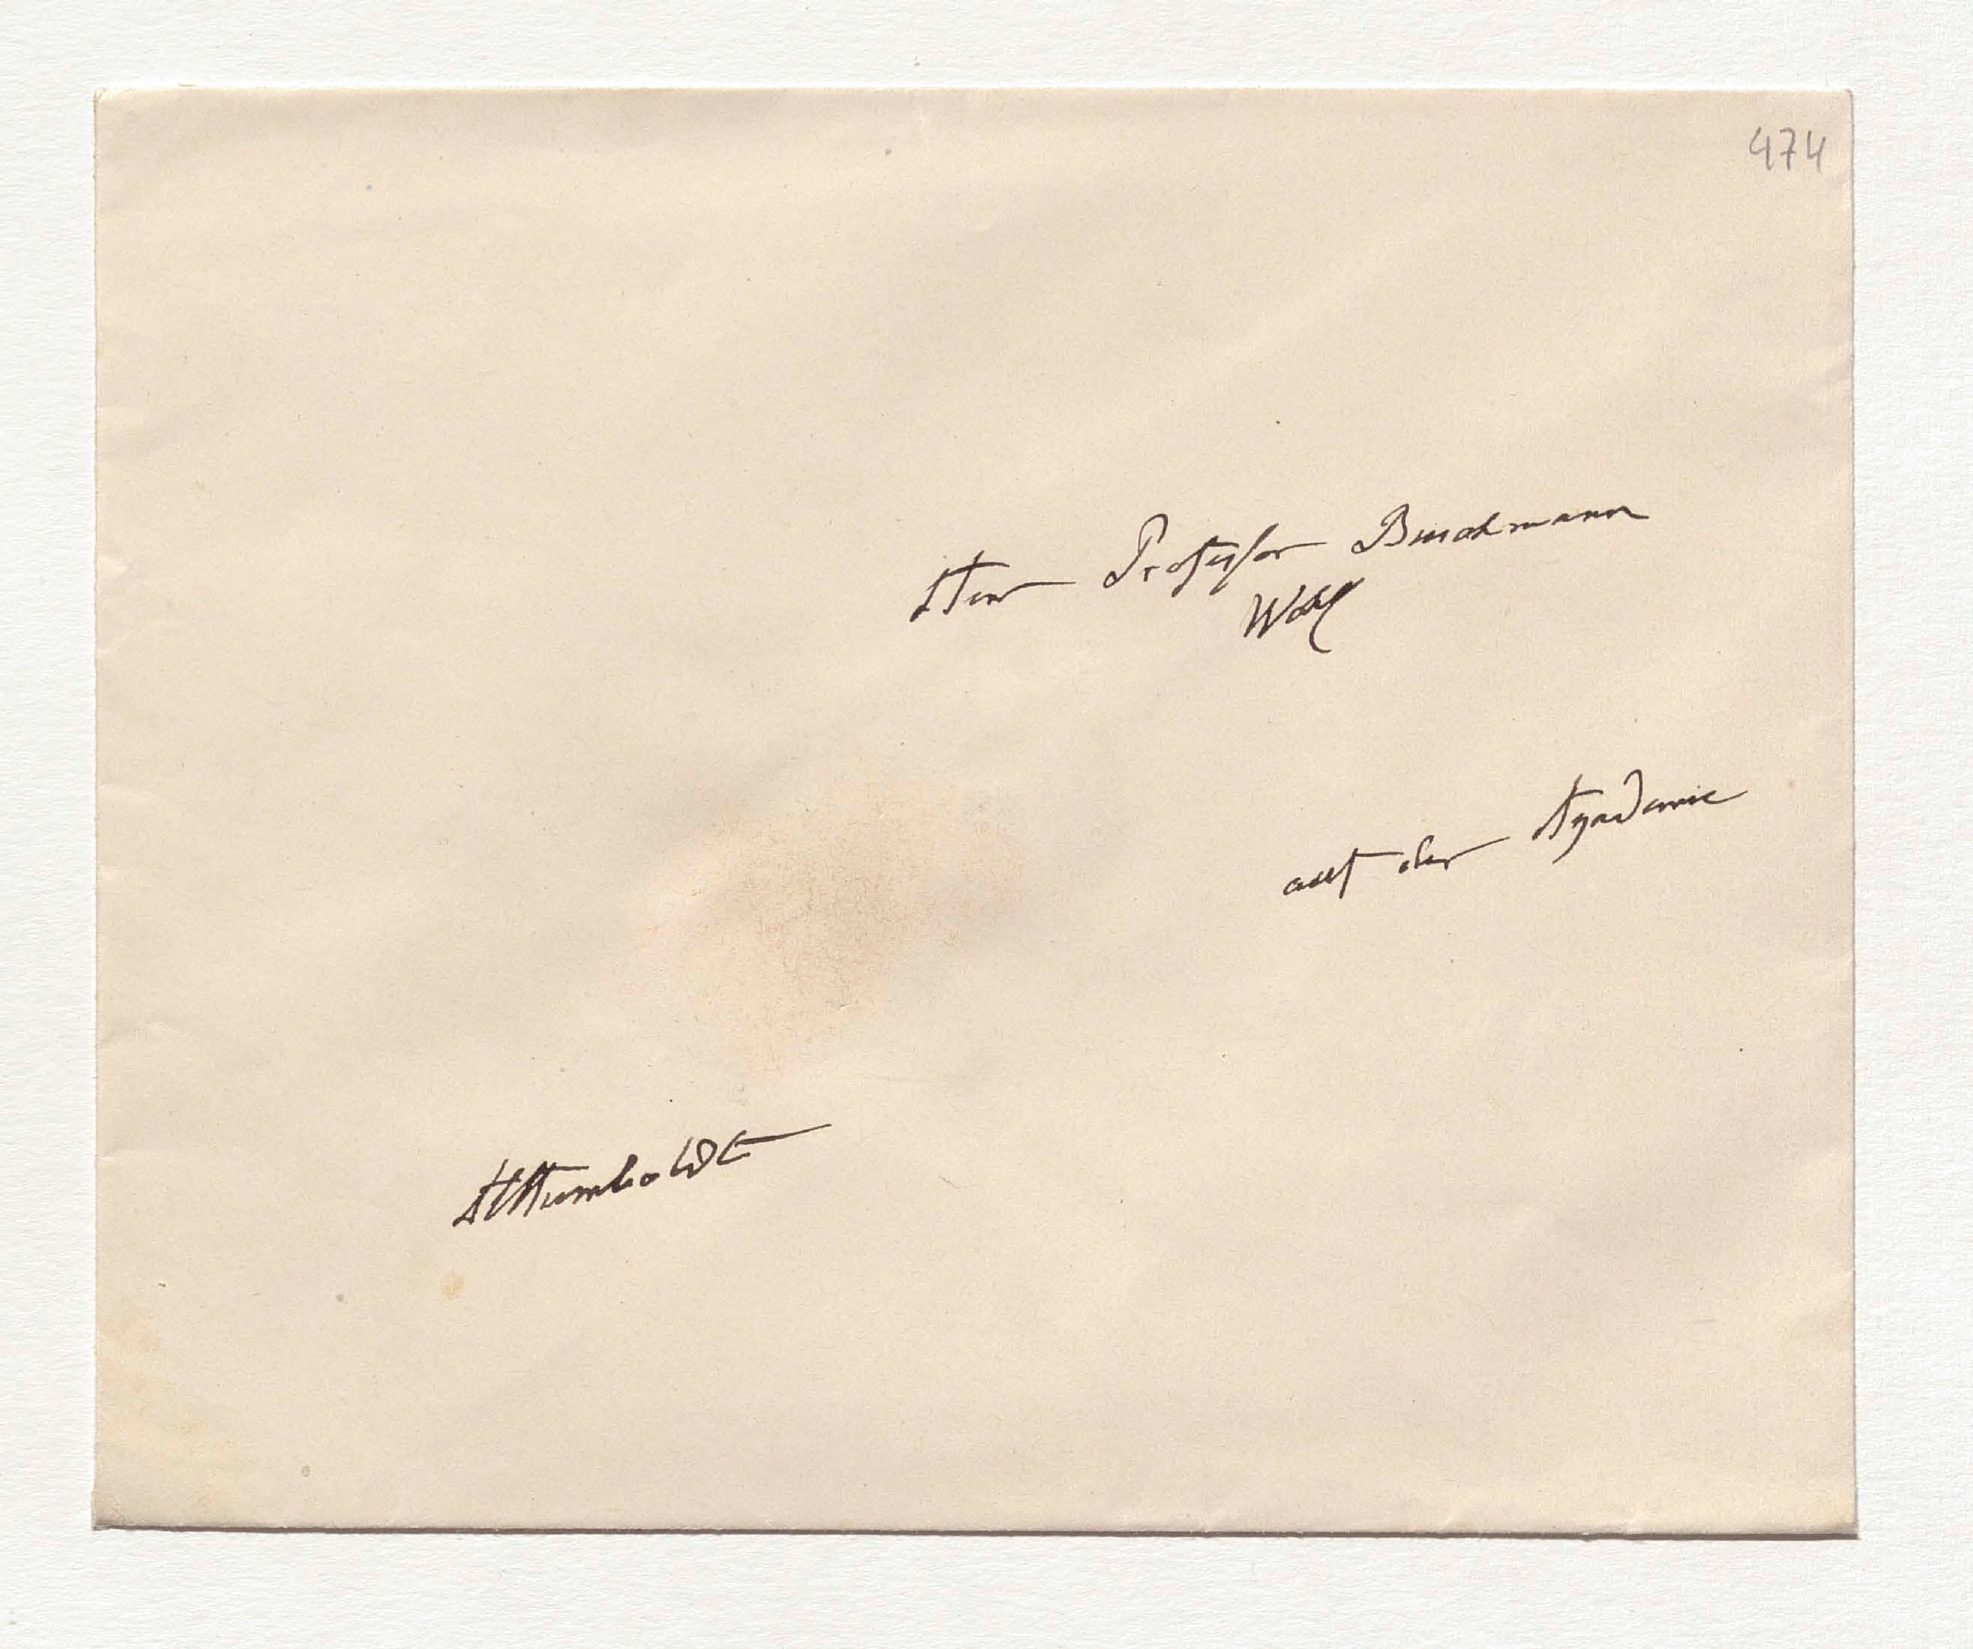 474
Herr Professor Buschmann
Wohl
auf der Akademie
AvHumboldt